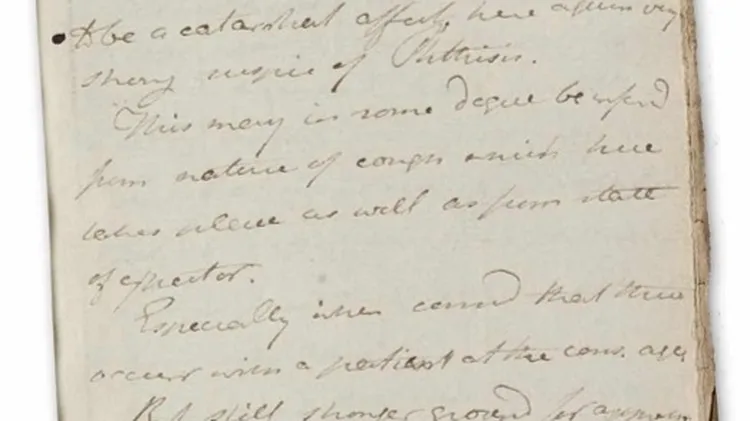 to be a catarrhal affectn, here again very
strong suspic of Phthisis.
This may in some degree be inferd
from nature of cough which here
takes place as well as from state
of expector.
Especially when consid that these
occur with a patient at the cons. age
But still stronger ground for